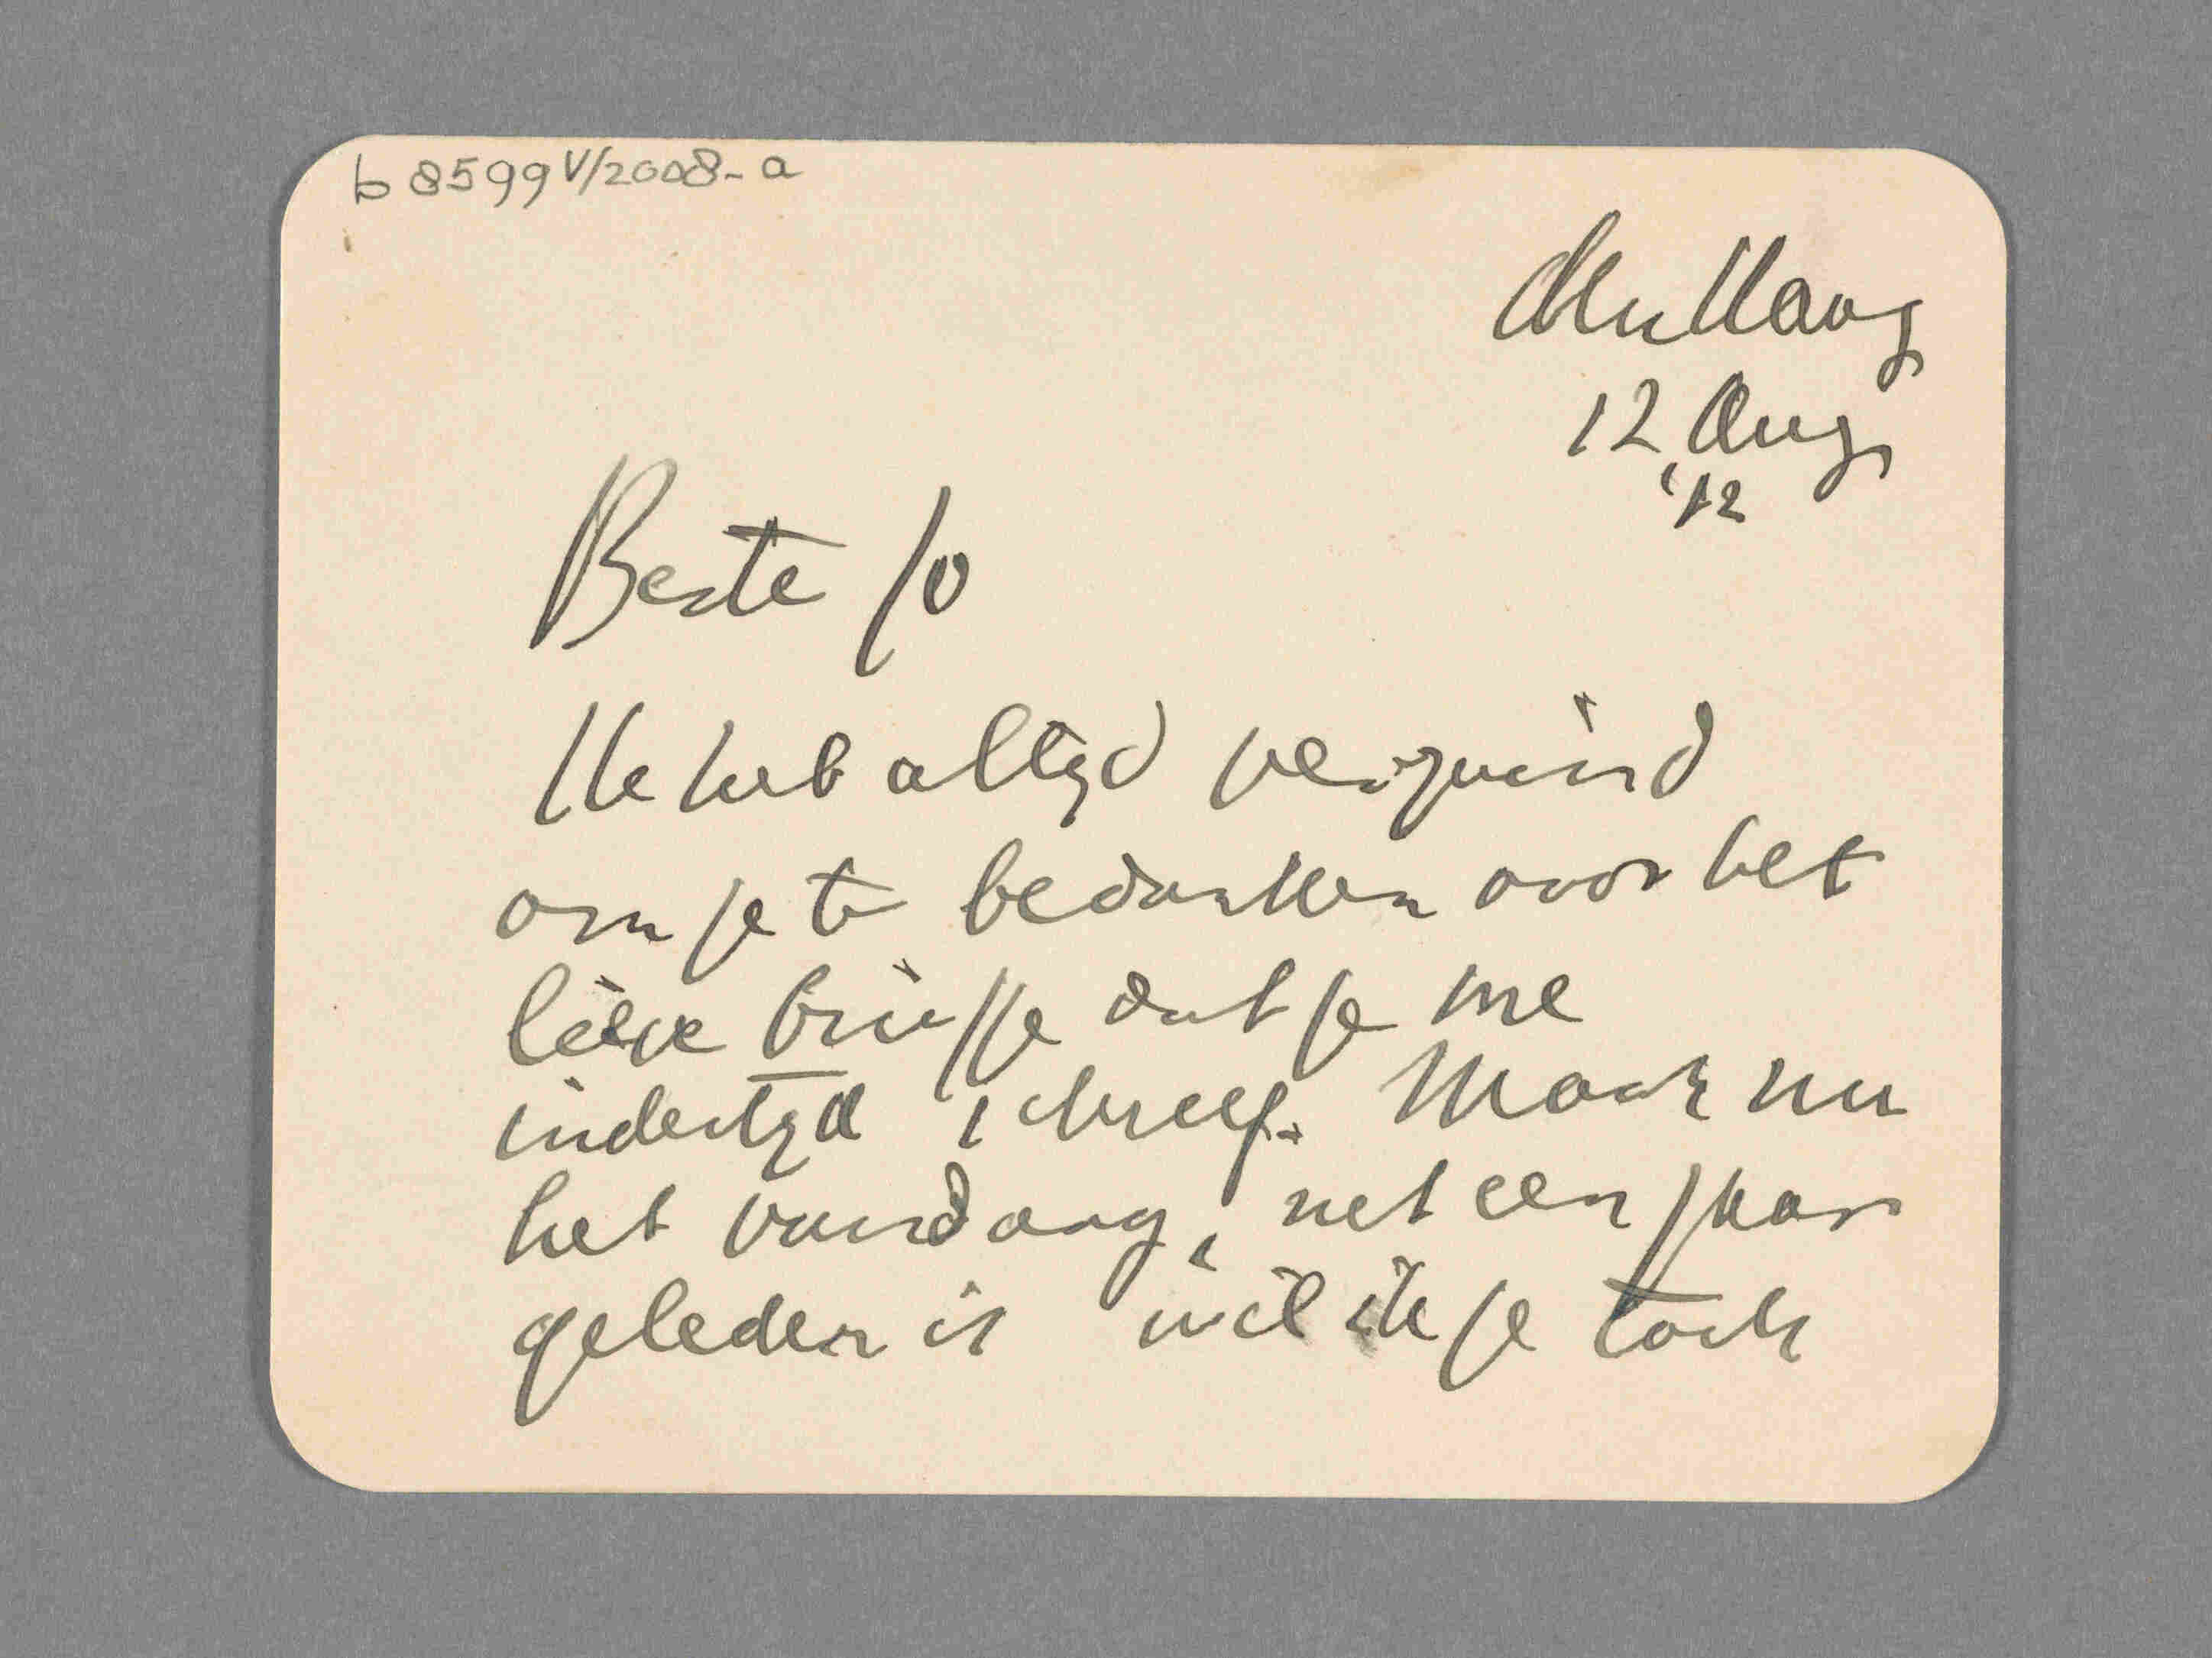 b 8599 V/2008-a
den Haag
12 Aug.
'12
Beste Jo
Ik heb altyd verzuimd
om je te bedanken voor het
lieve briefje dat je me
indertyd schreef. Maar nu
het vandaag, net een jaar
geleden is wil ik je toch